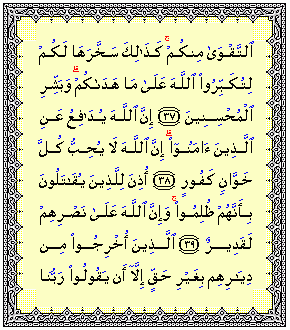 ٱلتَّقْوَىٰ مِنكُمْ ۚ كَذَٰلِكَ سَخَّرَهَا لَكُمْ
لِتُكَبِّرُوا۟ ٱللَّهَ عَلَىٰ مَا هَدَىٰكُمْ ۗ وَبَشِّرِ
ٱلْمُحْسِنِينَ ﴿٣٧﴾ إِنَّ ٱللَّهَ يُدَٰفِعُ عَنِ
ٱلَّذِينَ ءَامَنُوٓا۟ ۗ إِنَّ ٱللَّهَ لَا يُحِبُّ كُلَّ
خَوَّانٍ كَفُورٍ ﴿٣٨﴾ أُذِنَ لِلَّذِينَ يُقَٰتَلُونَ
بِأَنَّهُمْ ظُلِمُوا۟ ۚ وَإِنَّ ٱللَّهَ عَلَىٰ نَصْرِهِمْ
لَقَدِيرٌ ﴿٣٩﴾ ٱلَّذِينَ أُخْرِجُوا۟ مِن
دِيَٰرِهِم بِغَيْرِ حَقٍّ إِلَّآ أَن يَقُولُوا۟ رَبُّنَا